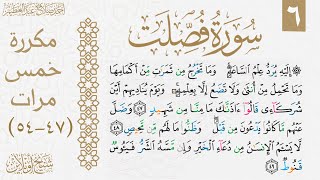 ٦
سُورَةُ فُصِّلَتْ
مكررة
خمس
مرات
(٤٧-٥٤)
۞ إِلَيْهِ يُرَدُّ عِلْمُ ٱلسَّاعَةِ ۚ وَمَا تَخْرُجُ مِن ثَمَرَٰتٍ مِّنْ أَكْمَامِهَا
وَمَا تَحْمِلُ مِنْ أُنثَىٰ وَلَا تَضَعُ إِلَّا بِعِلْمِهِۦ ۚ وَيَوْمَ يُنَادِيهِمْ أَيْنَ
شُرَكَآءِى قَالُوٓا۟ ءَاذَنَّٰكَ مَا مِنَّا مِن شَهِيدٍ ٤٧ وَضَلَّ
عَنْهُم مَّا كَانُوا۟ يَدْعُونَ مِن قَبْلُ ۖ وَظَنُّوا۟ مَا لَهُم مِّن مَّحِيصٍ ٤٨
لَّا يَسْـَٔمُ ٱلْإِنسَٰنُ مِن دُعَآءِ ٱلْخَيْرِ وَإِن مَّسَّهُ ٱلشَّرُّ فَيَـُٔوسٌ
قَنُوطٌ ٤٩